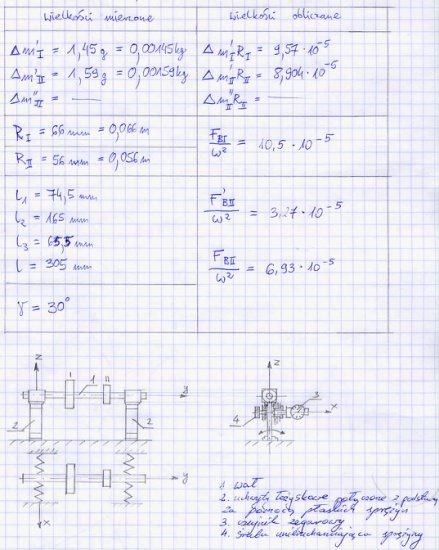 wielkości mierzone
wielkości obliczane
Δm'I = 1,45g = 0,00145kg
Δm'II = 1,59g = 0,00159kg
Δm''II = —
Δm'I RI = 9,57·10⁻⁵
Δm'II RII = 8,904·10⁻⁶
Δm''II RII = —
RI = 66mm = 0,066m
RII = 56mm = 0,056m
FBI/ω² = 10,5·10⁻⁵
l1 = 74,5 mm
l2 = 165 mm
l3 = 65,5 mm
l = 305 mm
F'BII/ω² = 3,27·10⁻⁵
FBII/ω² = 6,93·10⁻⁵
γ = 30°
z
I
1
II
2
2
y
x
z
3
4
x
1 wał
2. uchwyty łożyskowe połączone z podstawą
za pomocą płaskich sprężyn
3. czujnik zegarowy
4. śruba unieruchamiająca sprężyny